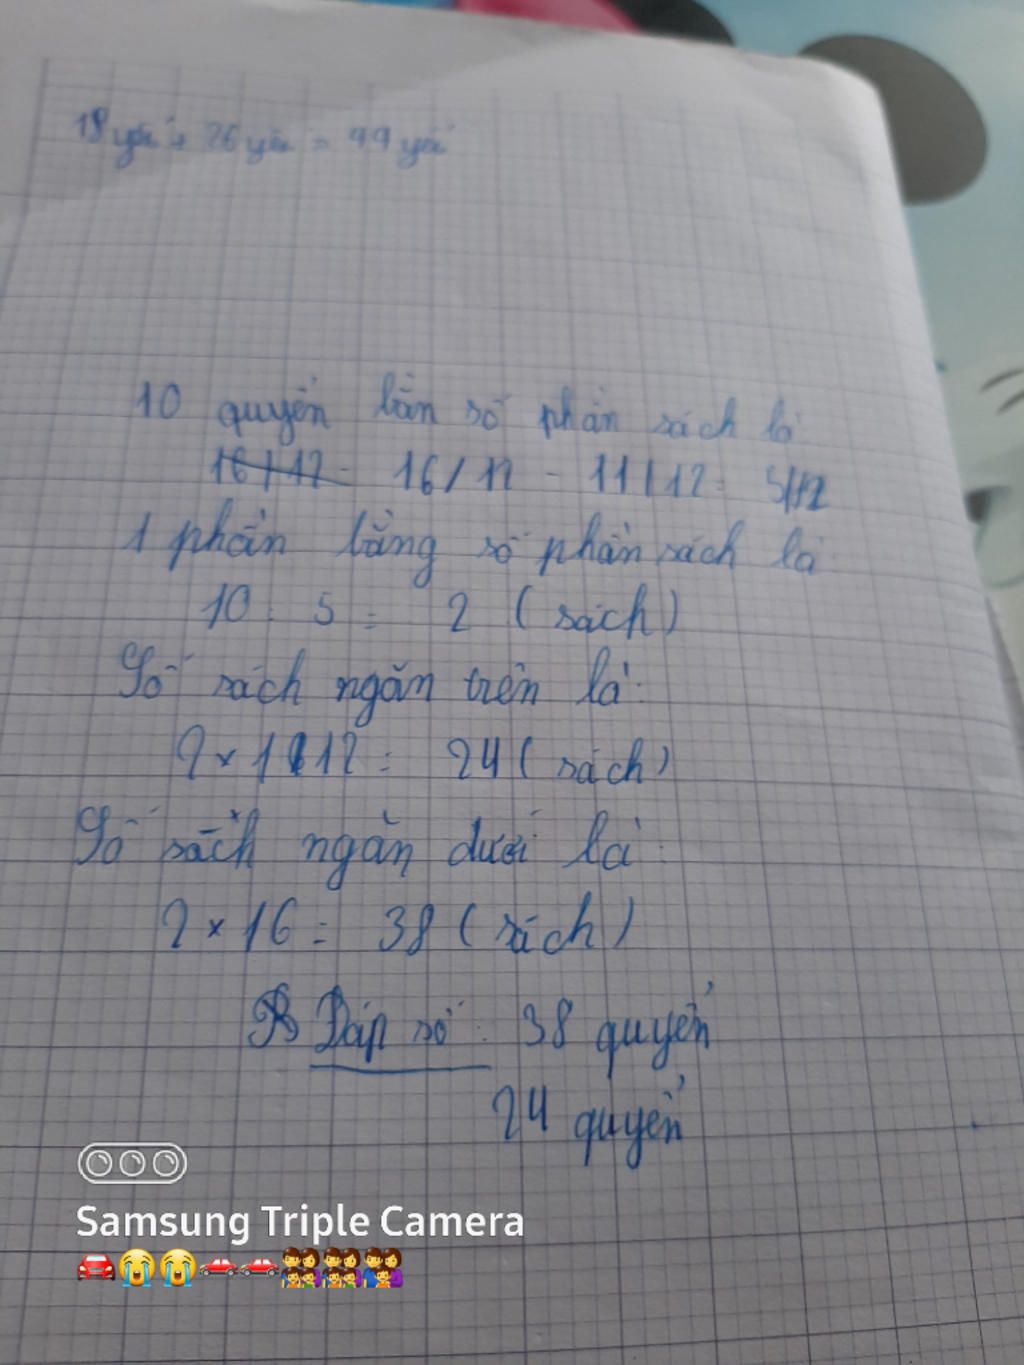 18 yến + 26 yến = 44 yến
10 quyển bằn số phần sách là
16/12 - 16/12 - 11/12 = 5/12
1 phần bằng số phần sách là
10 : 5 = 2 ( sách )
Số sách ngăn trên là :
2 x 12 = 24 ( sách )
Số sách ngăn dưới là :
2 x 16 = 38 ( sách )
Đáp số : 38 quyển
24 quyển
Samsung Triple Camera
🚘😭😭🚗🚗👨‍👩‍👧‍👦👨‍👩‍👧‍👦👨‍👩‍👦